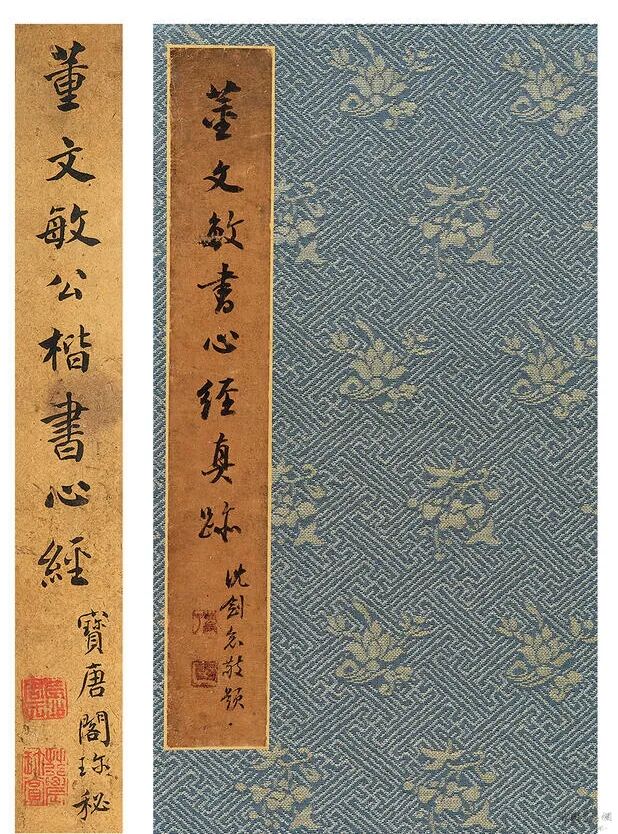 董文敏公楷書心經
寶唐閣珎秘
董文敏書心經真跡
沈剑知敬题